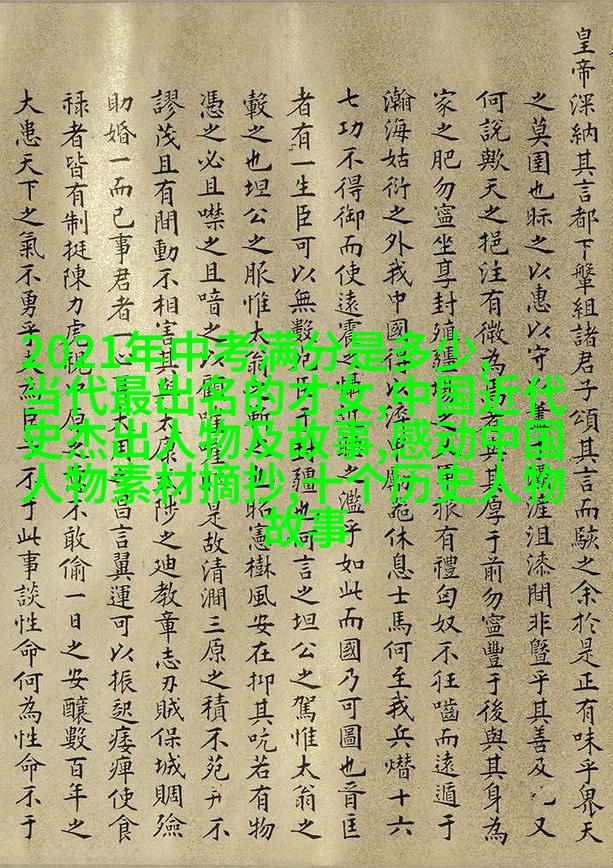 皇帝深納其言都下犖組諸君子頌其言而駭之余於是正有味乎畏天
之莫圉也眎之以惠以守涯沮漆閒非曁乎其善及又
何說歟天之挹注有微為者與其厚于前勿寍豐于後與其身為
家之肥勿寍坐享封殖纏狠有禮匈奴不狂嚙而遠遁于
瀚海姑衍之外我中國得以休息士馬何至我兵熸十六
七功不得御而使遠震之之濫乎如此而國乃可圖也晉匡
者有一生臣可以無數疆也何言之坦公之駕惟太翁之
轂之也坦公之服惟太翁昭憲樹風安在抑其吭若有物
憑之必且噤之且喑之是故清澗三原之積不苑并不
謬茂且有間動不相害其陟之廸教章志刃賊保城賙殮
助婚一而已事君者一昌言翼運可以振起痿痺使食
祿者皆有制挺陳力虎視不敢偷一日之安釀數百年之
大患天下之氣不勇乎為臣不于此事談性命何為性命不于
2021年中考满分是多少,
当代最出名的才女,中国近代
史杰出人物及故事,感动中国
人物素材摘抄,十个历史人物
故事